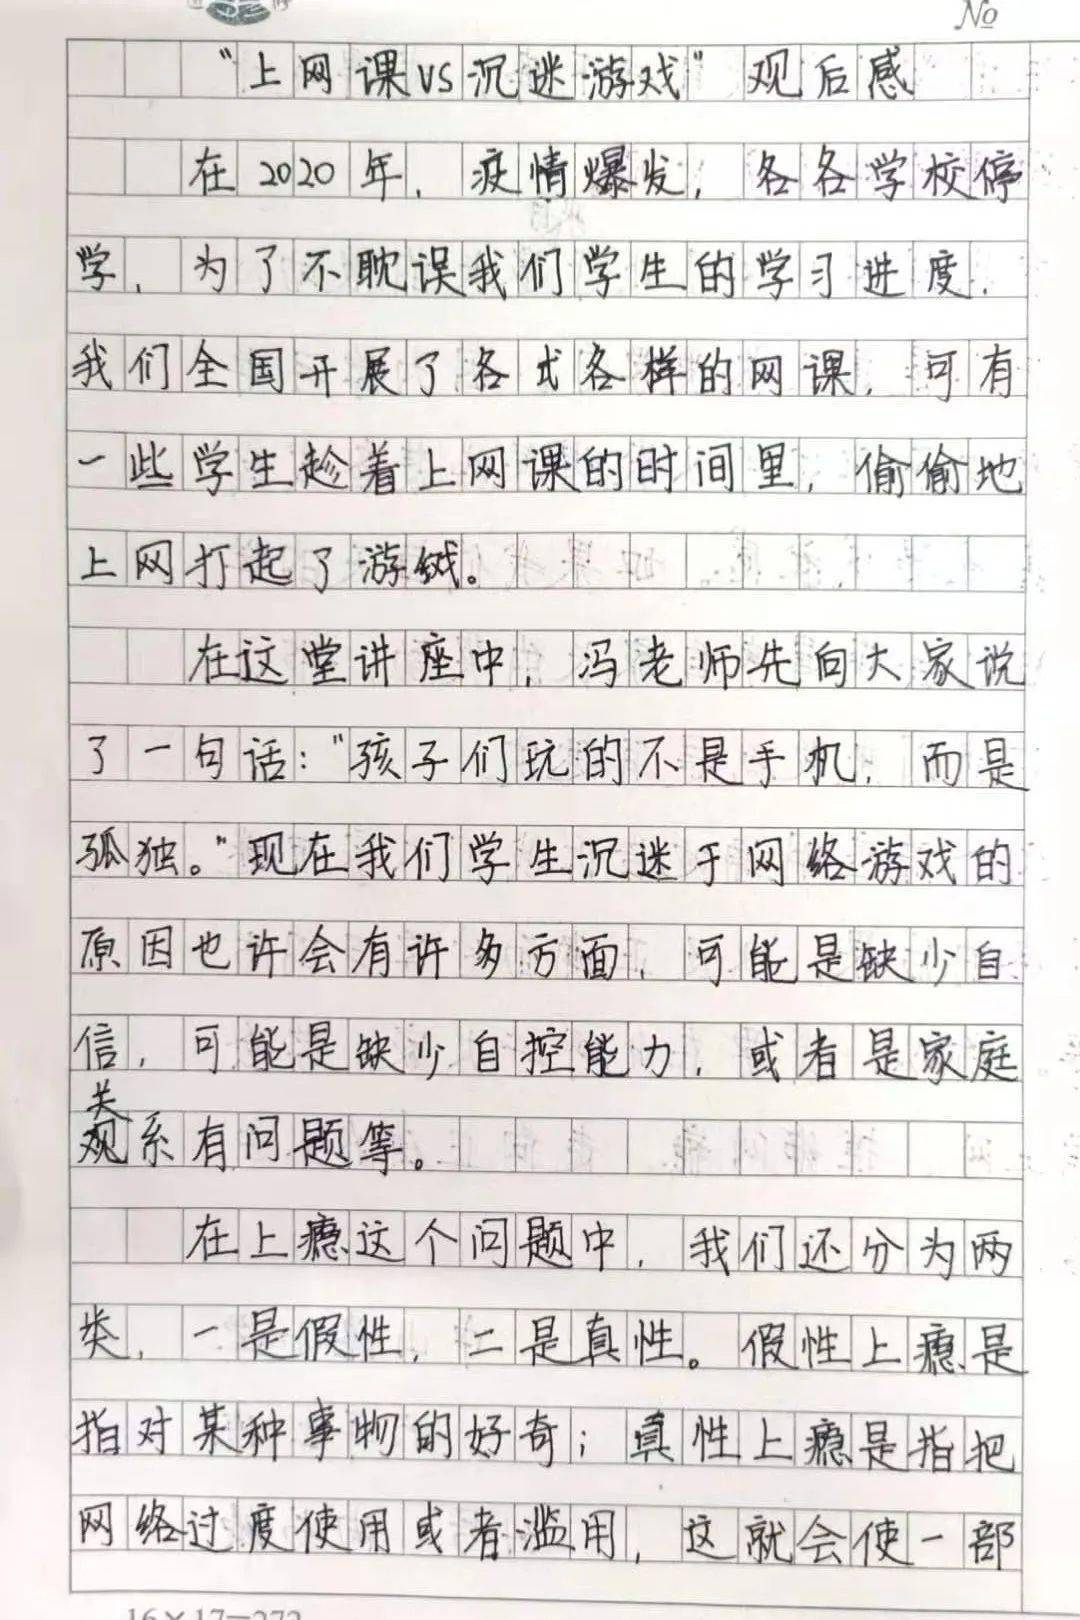 №
“上网课vs沉迷游戏”观后感
在2020年，疫情爆发，各各学校停
学，为了不耽误我们学生的学习进度，
我们全国开展了各式各样的网课，可有
一些学生趁着上网课的时间里，偷偷地
上网打起了游戏。
在这堂讲座中，冯老师先向大家说
了一句话：“孩子们玩的不是手机，而是
孤独。”现在我们学生沉迷于网络游戏的
原因也许会有许多方面，可能是缺少自
信，可能是缺少自控能力，或者是家庭
关系有问题等。
在上瘾这个问题中，我们还分为两
类，一是假性，二是真性。假性上瘾是
指对某种事物的好奇；真性上瘾是指把
网络过度使用或者滥用，这就会使一部
16×17=272